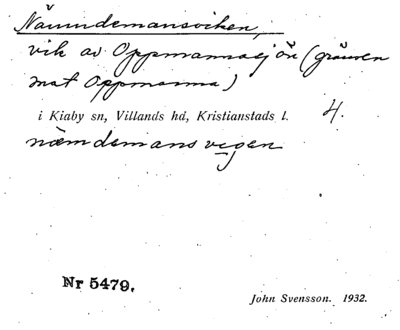 Nämndemansviken,
vik av Oppmannasjön (gränsen
mot Oppmanna)
i Kiaby sn, Villands hd, Kristianstads l. 4.
næmdemansvegen
Nr 5479.
John Svensson. 1932.